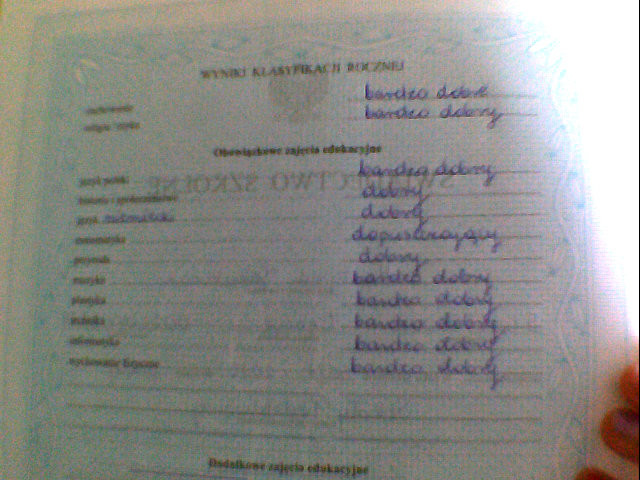 WYNIKI KLASYFIKACJI ROCZNEJ
zachowanie bardzo dobre
religia / etyka bardzo dobry
Obowiązkowe zajęcia edukacyjne
język polski bardzo dobry
historia i społeczeństwo dobry
język niemiecki dobry
matematyka dopuszczający
przyroda dobry
muzyka bardzo dobry
plastyka bardzo dobry
technika bardzo dobry
informatyka bardzo dobry
wychowanie fizyczne bardzo dobry
Dodatkowe zajęcia edukacyjne